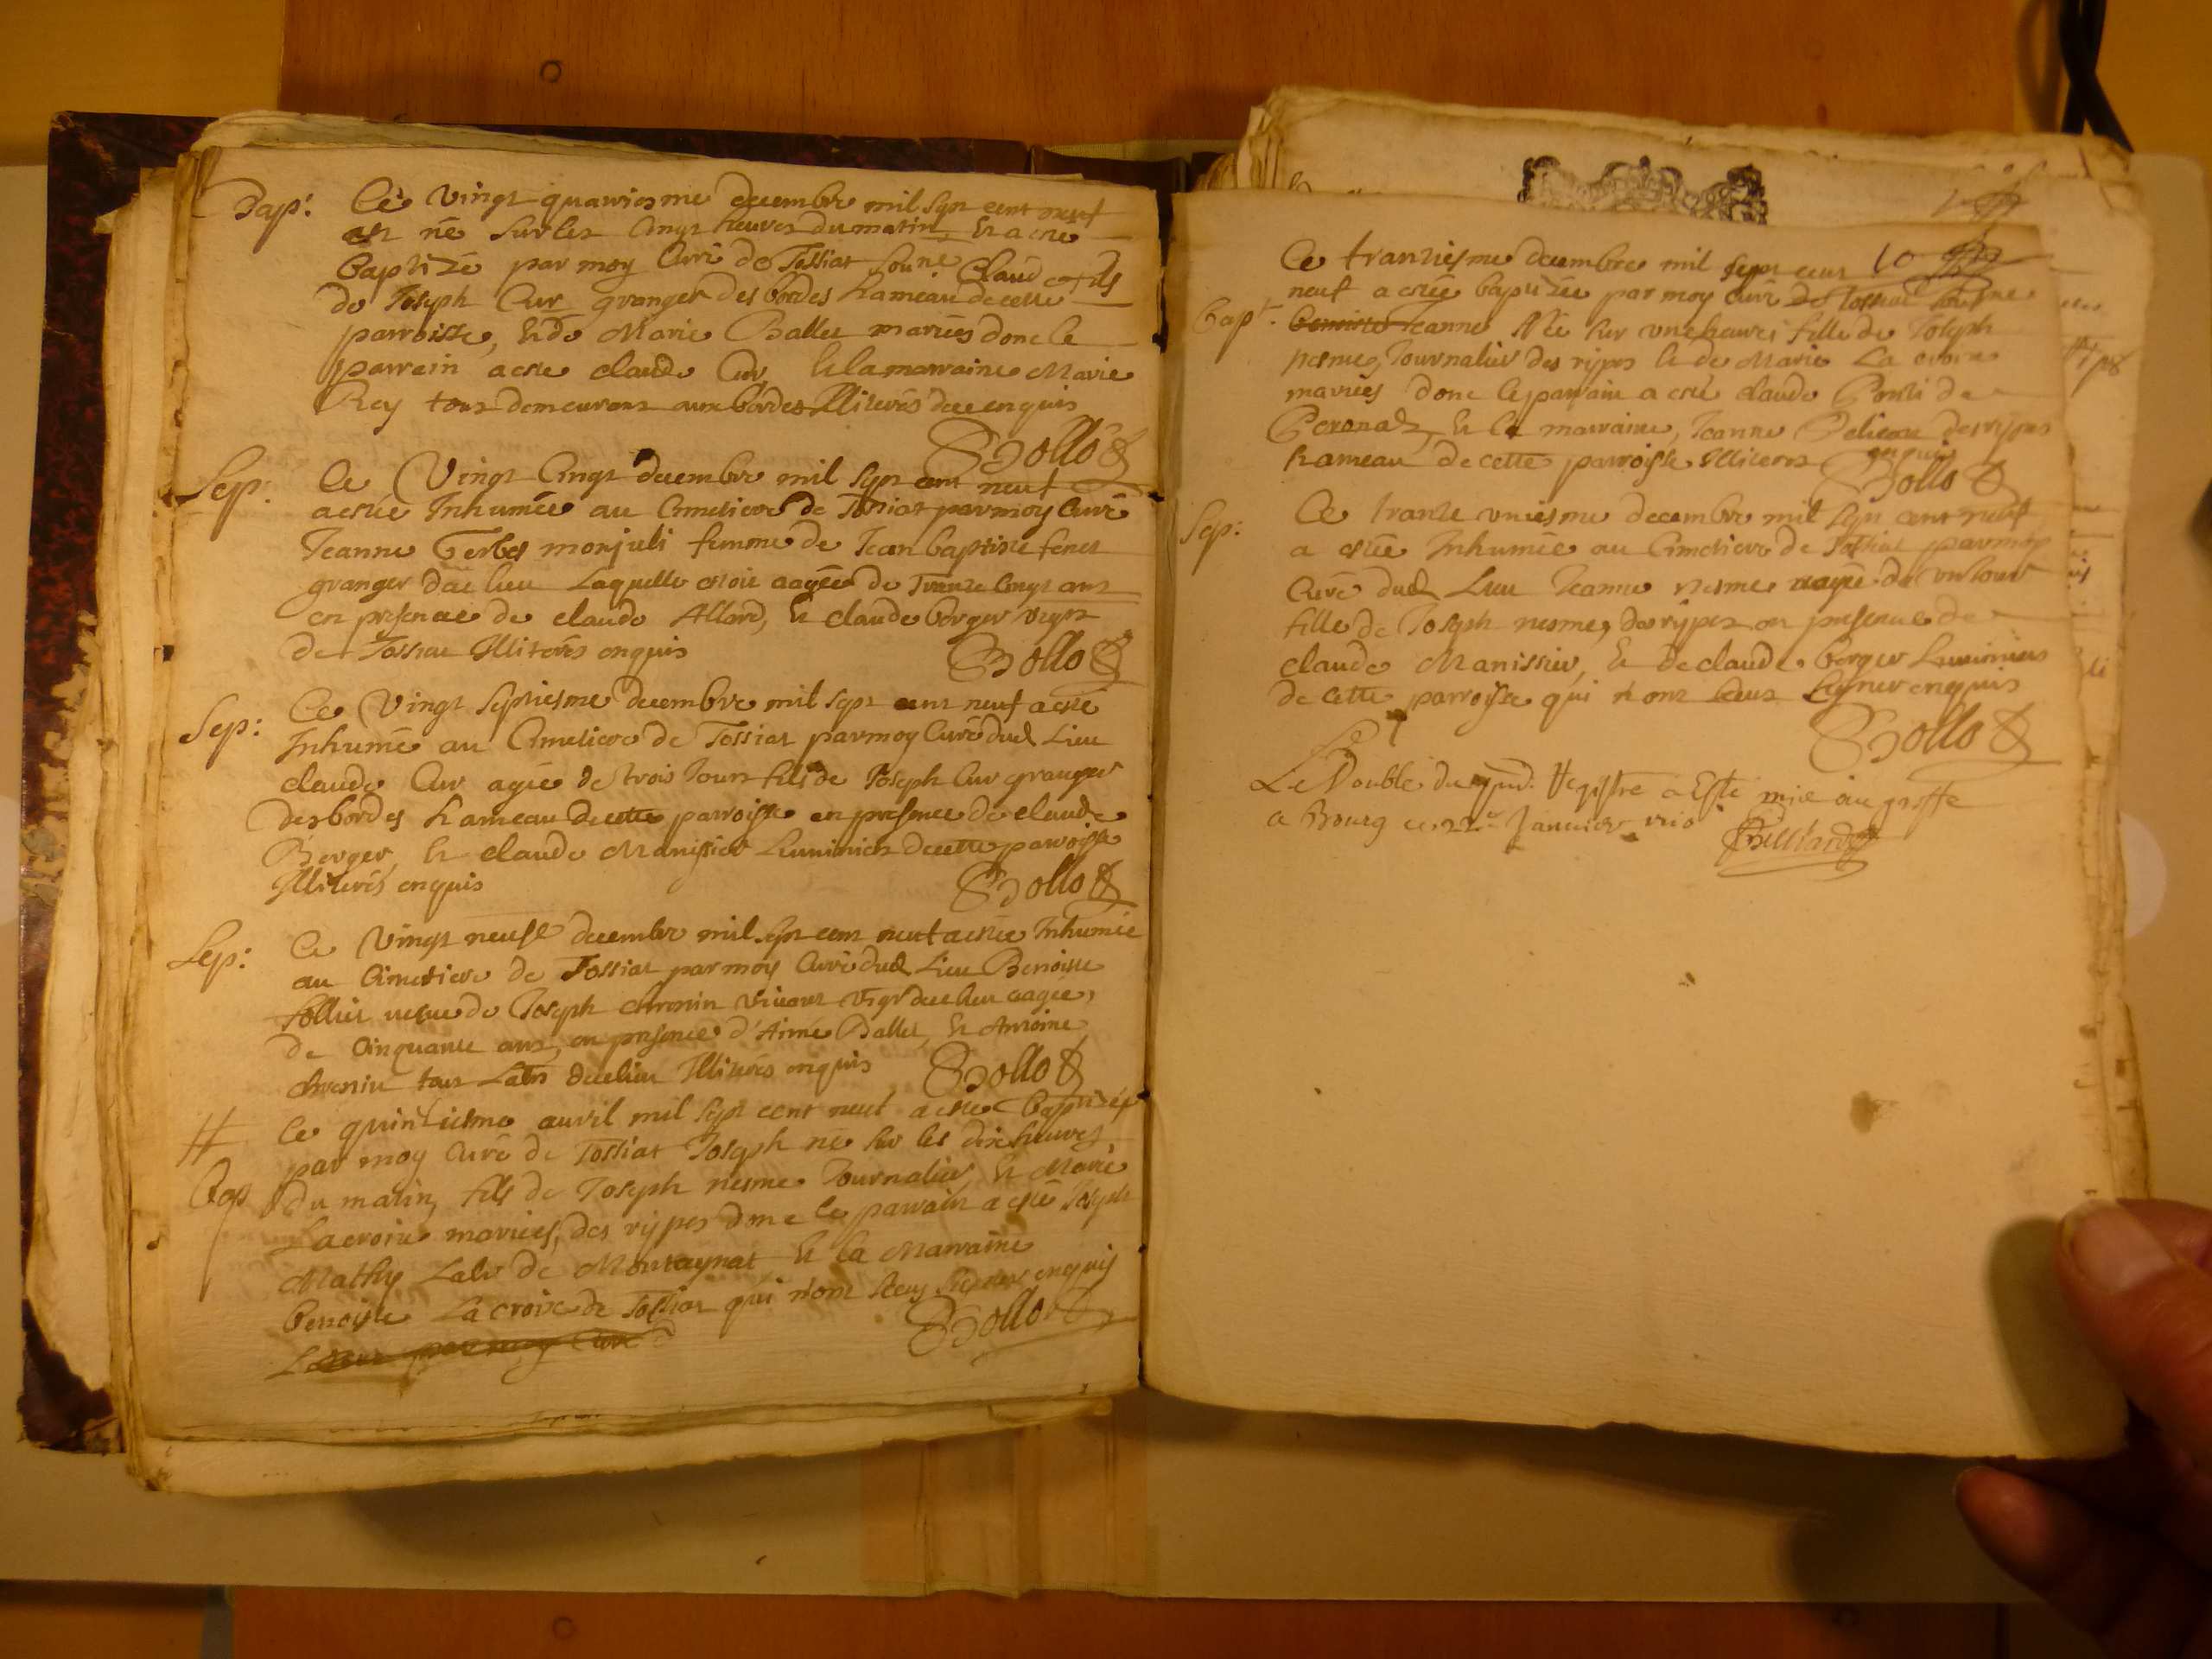 Bap:
Ce vingt quatriesme decembre mil sept cent neuf
est né sur les cinqt heures du matin, et a esté
baptizé par moy curé de Tossiat Claude fils
de Joseph Cur granger des bordes hameau de cette
parroisse, et de Marie Ballet mariés donc le
parrain a esté claude Cur, et la marraine Marie
Rey tous demeurans aux bordes Illiterés de ce enquis
Bollo
Sep:
Ce vingt cinqt decembre mil sept cent neuf
a estée Inhumée au cimetiere de Tossiat par moy curé
Jeanne monjuli femme de Jean baptiste
granger dud lieu Laquelle estoit aagée de trente cinqt ans
en presence de claude Allard, et claude berger
de Tossiat Illiterés enquis
Bollo
Sep:
Ce vingt septiesme decembre mil sept cent neuf a esté
Inhumé au cimetiere de Tossiat par moy curé dud Lieu
claude Cur agée de trois Jours fils de Joseph Cur granger
des bordes hameau de cette parroisse en presence de claude
Berger, et claude Manissier de cette parroisse
Illiterés enquis
Bollo
Sep:
Ce vingt neufe decembre mil sept cent neuf a estée Inhumée
au cimetiere de Tossiat par moy curé dud Lieu Benoiste
veuve de Joseph chronin vivant de ce lieu aagée,
de cinquante ans, en presence d'Aimé Ballet, et Antoine
tous Labrs de ce lieu Illiterés enquis
Bollo
#
Bap
Ce quinziesme auvril mil sept cent neuf a esté baptizé
par moy curé de Tossiat Joseph né sur les dix heures
du matin, fils de Joseph nesme Journalier, et Marie
Lacroix mariées, des rippes donc le parrain a esté Joseph
Mathy Labr de Montagnat et la Marraine
benoiste Lacroix de Tossiat qui n'ont sceus signer enquis
Bollo
par moy curé
10
Bapt:
Ce trantiesme decembre mil sept cent
neuf a estée baptizée par moy curé de Tossiat
Jeanne Née sur unze heures fille de Joseph
nesme, Journalier des rippes et de Marie La croix
mariées donc le parrain a esté claude de
Peronas, et la marraine, Jeanne des rippes
hameau de cette parroisse Illiteres enquis
Bollo
Sep:
Ce trante uniesme decembre mil sept cent neuf
a estée Inhumée au cimetiere de Tossiat par moy
curé dud Lieu Jeanne nesme aagée de un Jour
fille de Joseph nesme, des rippes en presence de
claude Manissier, et de claude berger
de cette parroisse qui n'ont sceus signer enquis
Bollo
Le Double du Registre a Esté mis au greffe
a Bourg ce 22e Januier